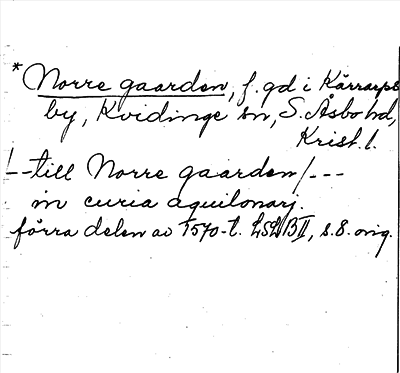 * Norre gaarden, f. gd i Kärrarps
by, Kvidinge sn, S. Åsbo hd,
Krist. l.
|--till Norre gaarden/---
in curia aquilonarj.
förra delen av 1570-t. LSLB II, s. 8. orig.